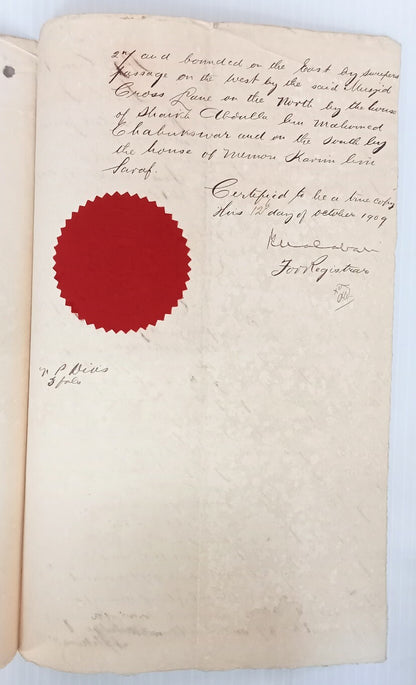 2nd and bounded on the East by sweepers
passage on the west by the said Musjid
Cross Lane on the North by the house
of Shaikh Abdulla bin Mahomed
Chabukswar and on the South by
the house of Memon Karim bin
Saraf.
Certified to be a true copy
this 12th day of October 1909
For Registrar
3 fols